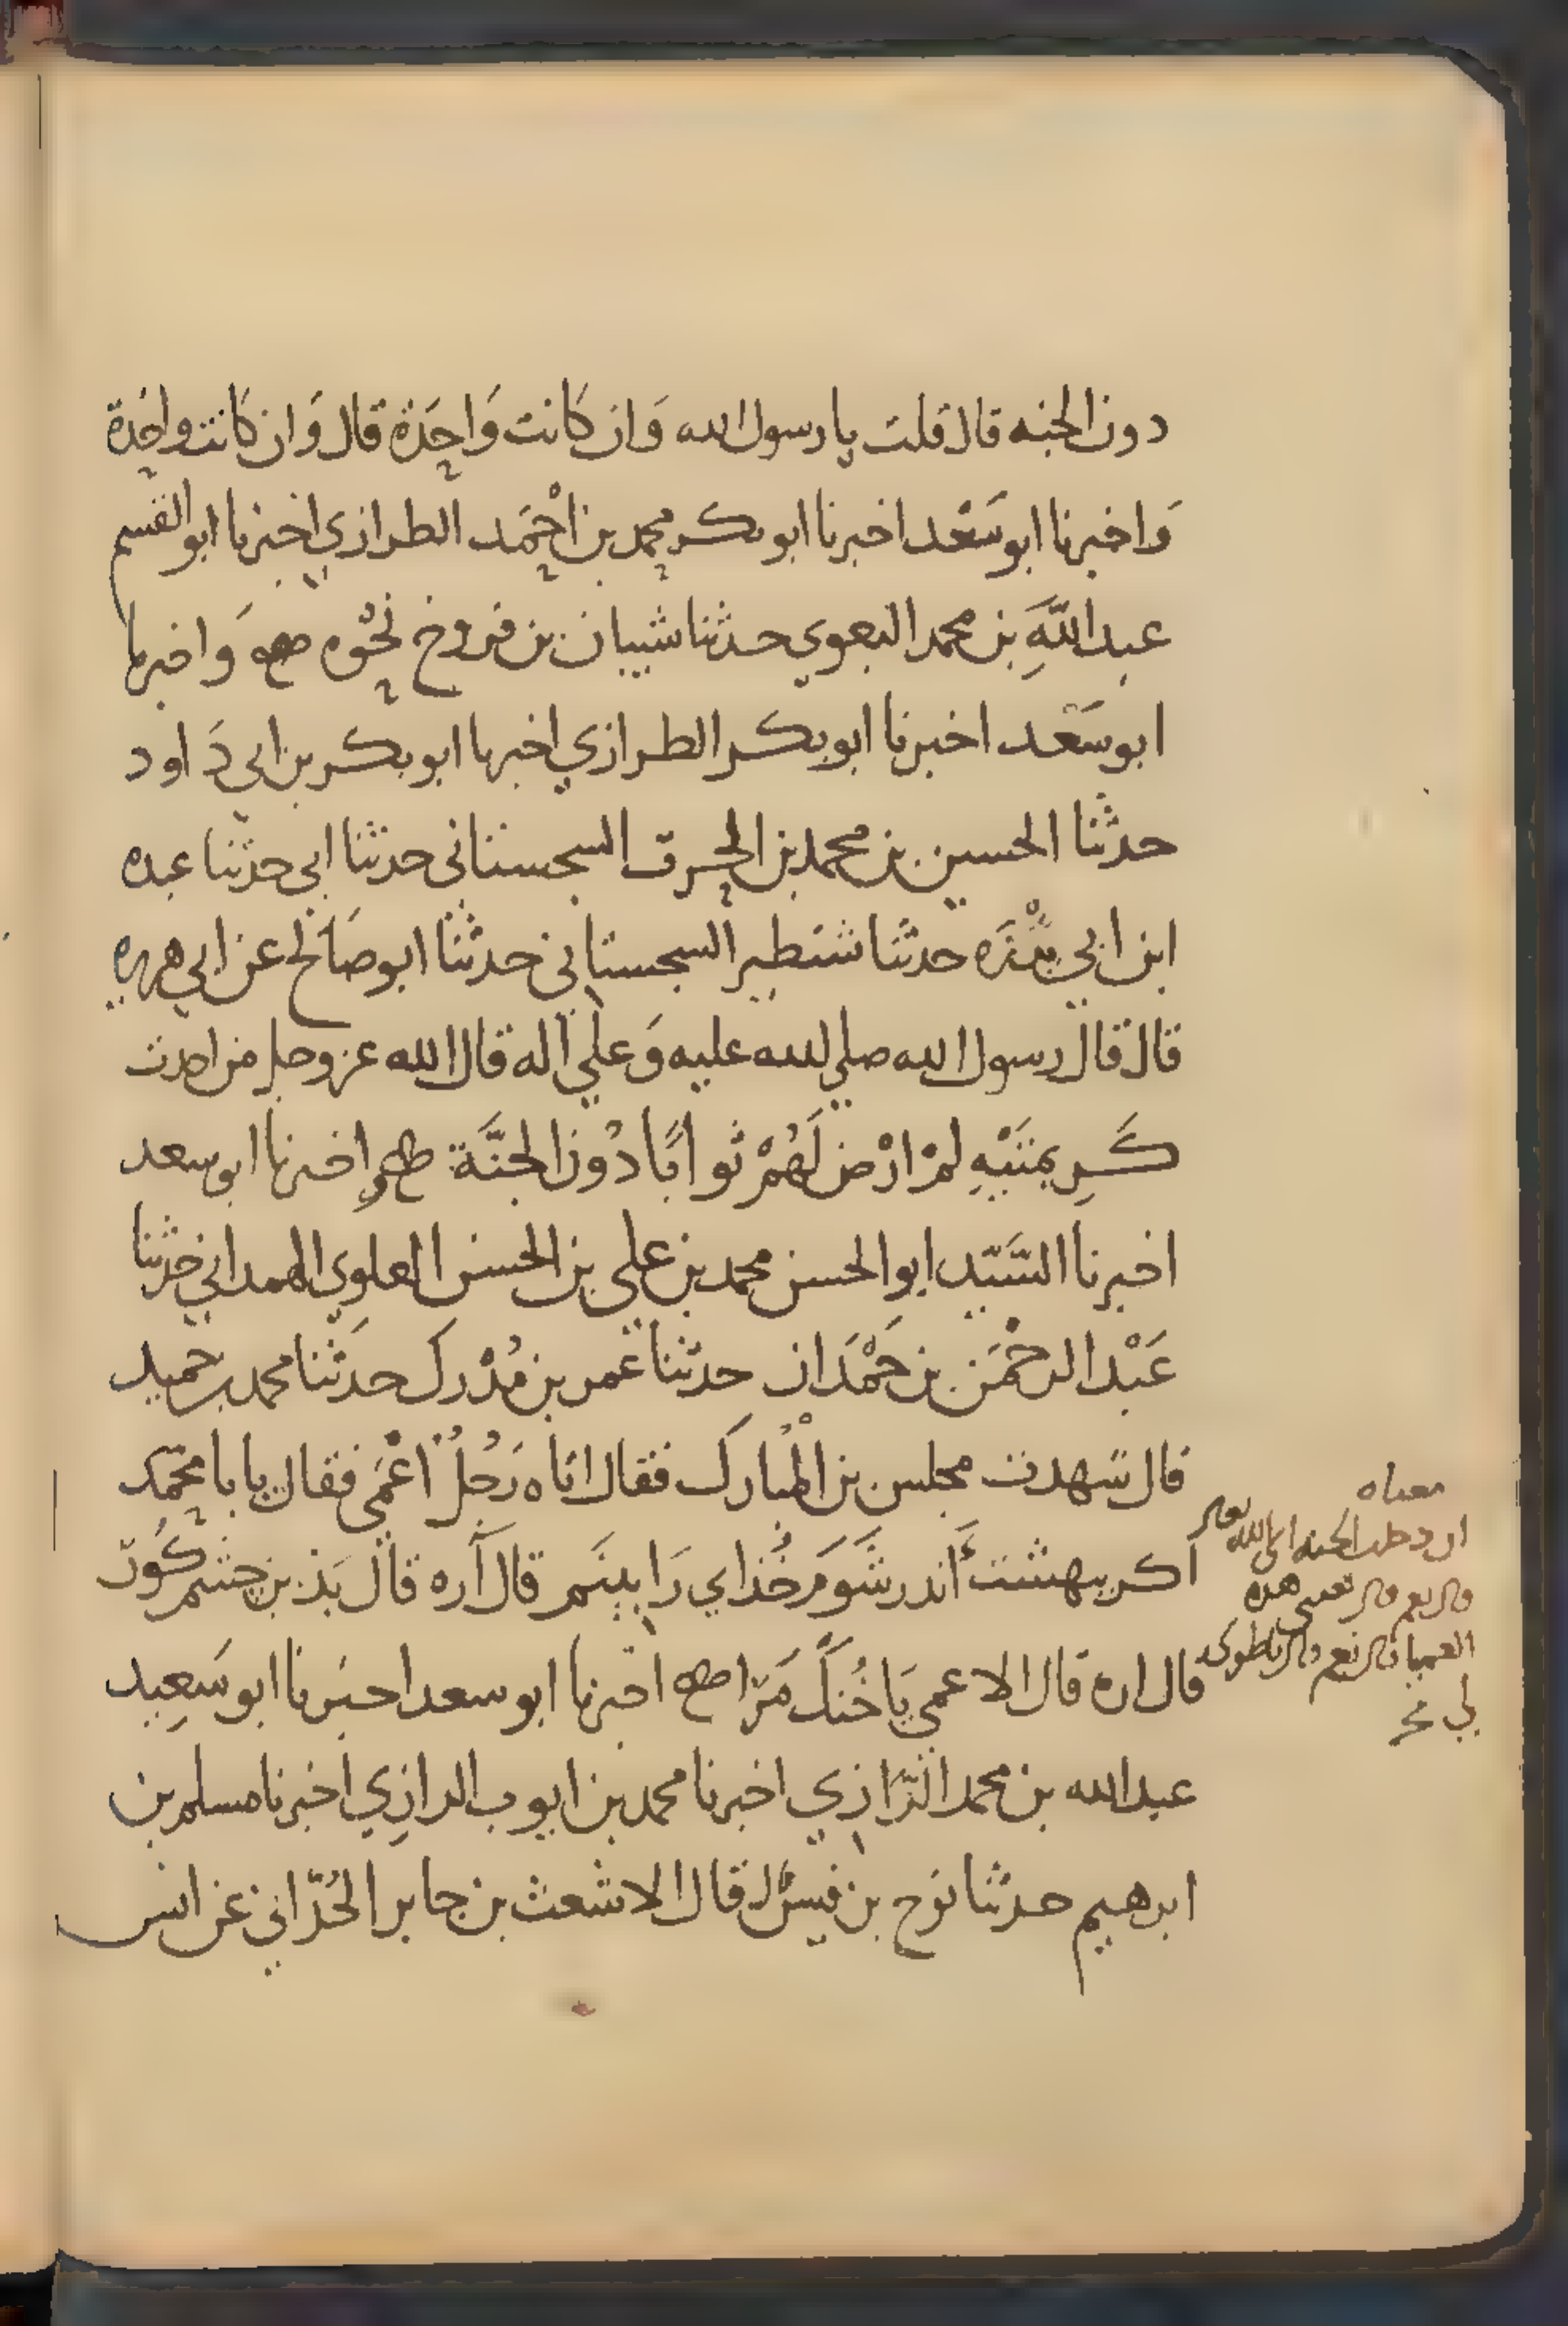 دون الجنه قال قلت يا رسول الله وَان كانت وَاحِدَة قال وَان كانت واحِدة
وَاخبرنا ابو سَعْد اخبرنا ابو بكر محمد بن احْمَد الطرازي اخبرنا ابو القسم
عبد اللَّهِ بن محمد البغوي حدثنا شيبان بن فروخ نحْوه صح وَاخبرنا
ابو سَعْد اخبرنا ابو بكر الطرازي اخبرنا ابو بكر بن ابي دَاود
حدثنا الحسين بن محمد بن السجستاني حدثنا ابي حدثنا عبده
ابن ابي حدثنا شنطير السجستاني حدثنا ابو صَالح عن ابي هريره
قال قال رسول الله صلي الله عليه وَعلي اله قال الله عز وجل من
كَرِيمتَيْهِ لمْ ارْض لَهُمْ ثوابًا دُون الجنَّة صح اخبرنا ابو سعد
اخبرنا السَّيّد ابو الحسن محمد بن علي بن الحسن العلوي الهمداني حدثنا
عَبْد الرحْمَن بن حَمْدَان حدثنا عمر بن مُدْرك حدَثنا محمد بن حميد
قال شهدت مجلس بن المُبارك فقال اتاه رَجُلٌ اعْمَي فقال يا با محمّد
اكر ببهشت اَندر شَوَم خُذاي رَا بينَم قال آره قال بَذين چشم كُور
قال اره قال الاعمي يَا خُنكَ مَرا صح اخبرنا ابو سعد اخبَرنا ابو سَعِيد
عبد الله بن محمد الرَّازي اخبرنا محمد بن ايوب الرازِي اخبرنا مسلم بن
ابرهيم حدثنا نوح بن قيس قال الاشعث بن جابر الحُدّاني عن انس
معناه
ان دخلت الجنه الله
قال نعم قال بعيني هذه
العميا قال نعم قال طوبى
لي